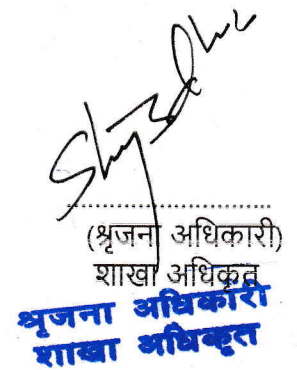 (श्रृजना अधिकारी)
शाखा अधिकृत
श्रृजना अधिकारी
शाखा अधिकृत